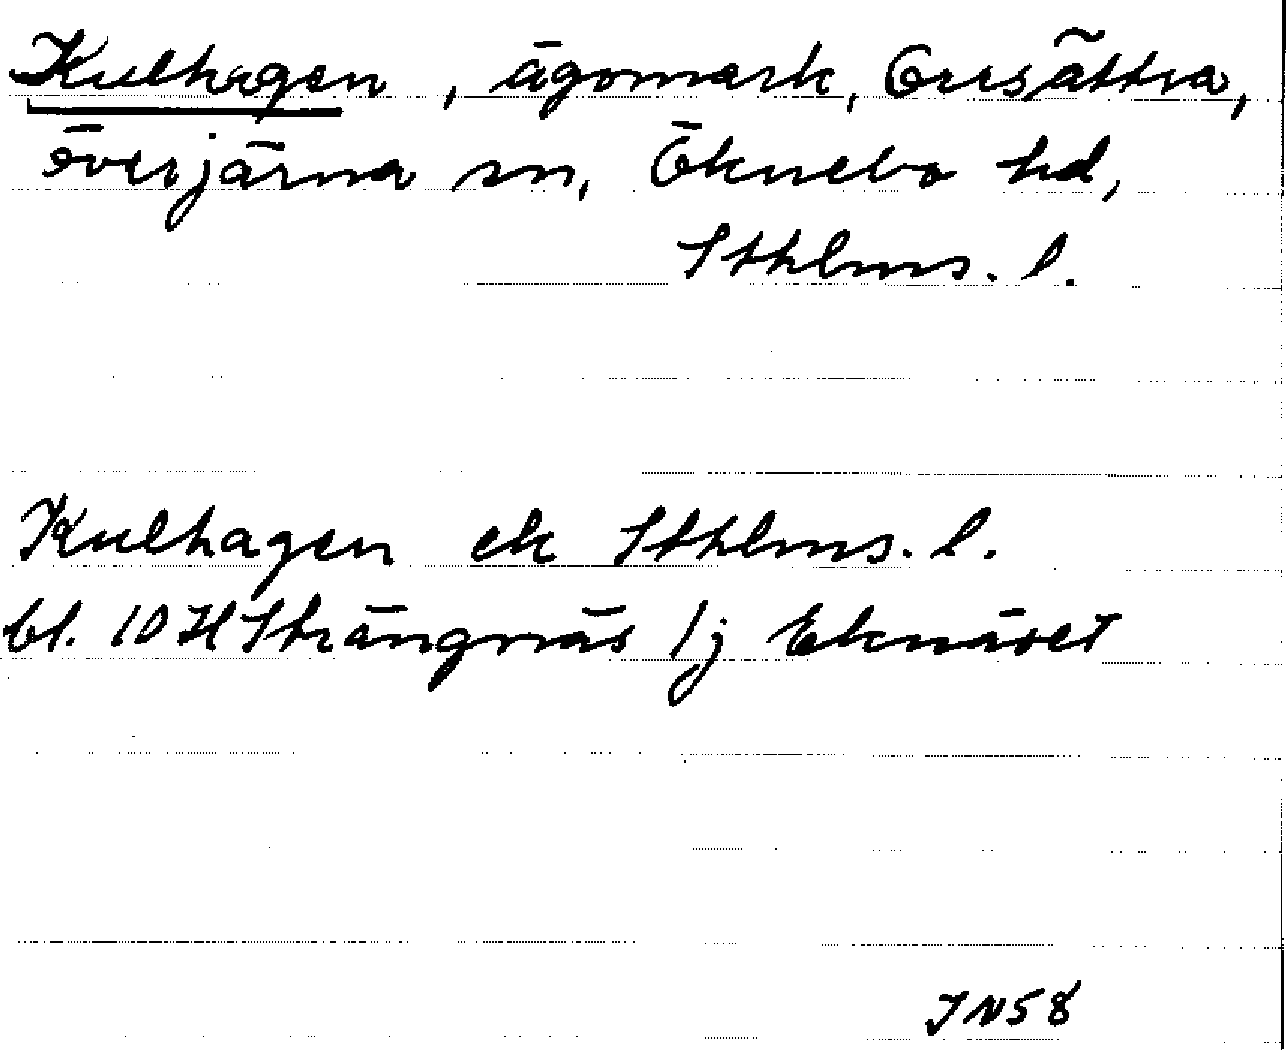 Kulhagen, ägomark, Ensättra,
Överjärna sn, Öknebo hd,
Sthlms. l.
Kulhagen ek Sthlms. l.
bl. 10 H Strängnäs 1j Eknäset
JN58